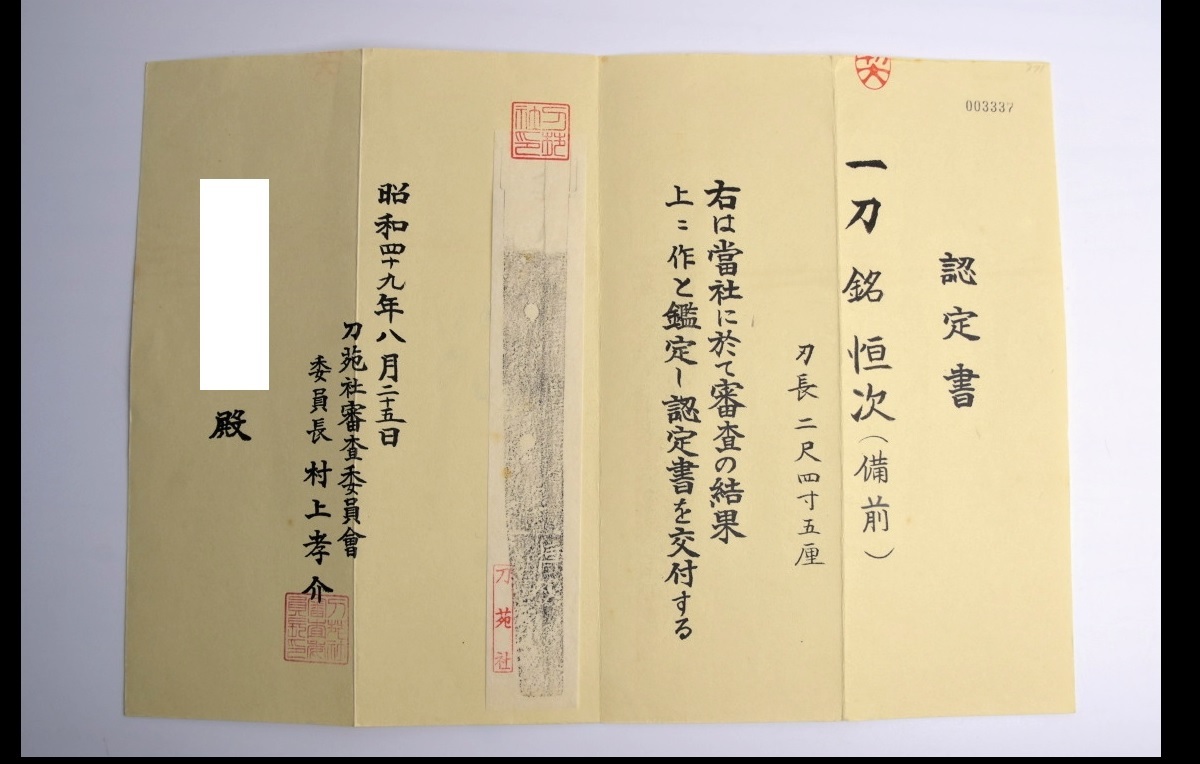 003337
認定書
一刀 銘 恒次(備前)
刃長 二尺四寸五厘
右は當社に於て審査の結果
上々作と鑑定し認定書を交付する
刀苑社印
刀苑社
昭和四十九年八月二十五日
刀苑社審査委員會
委員長 村上孝介
殿